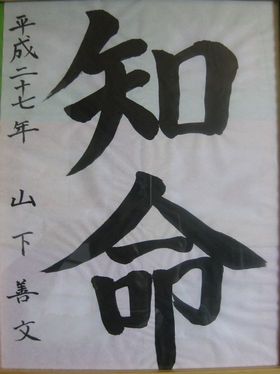 知命
平成二十七年　山下善文